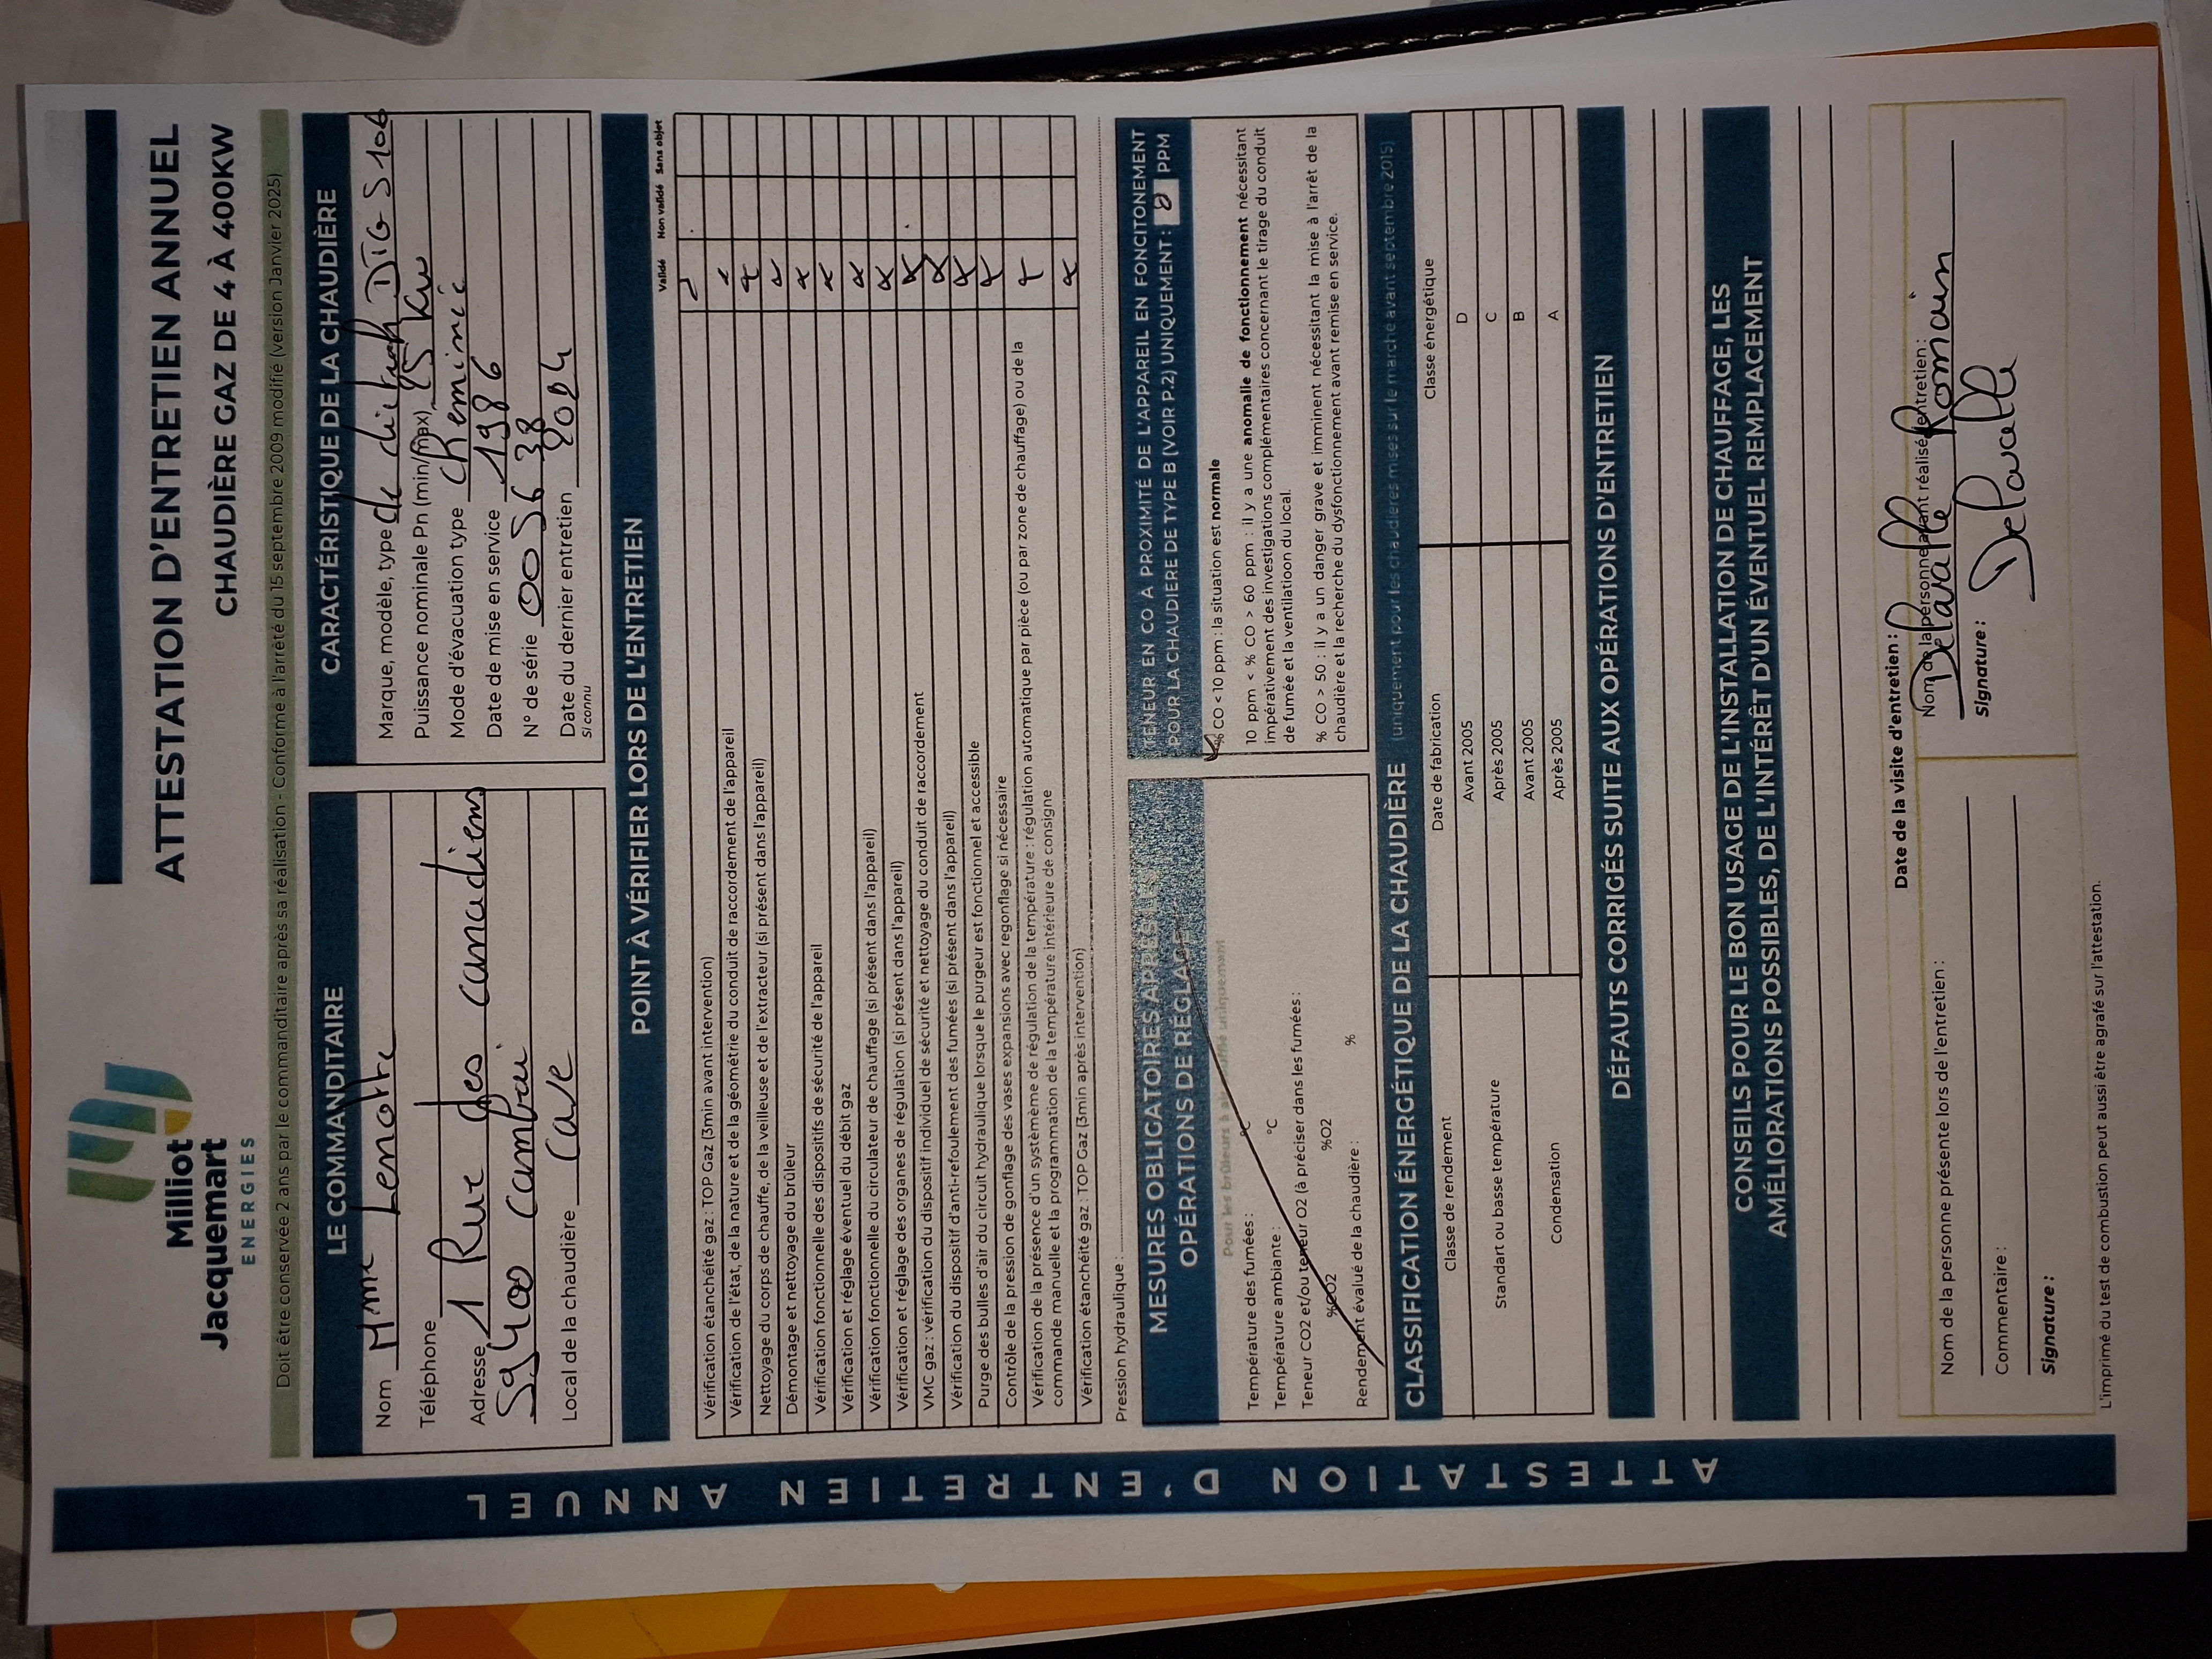 Milliot
Jacquemart
ENERGIES
ATTESTATION D'ENTRETIEN ANNUEL
CHAUDIÈRE GAZ DE 4 À 400KW
Doit être conservée 2 ans par le commanditaire après sa réalisation - Conforme à l'arrêté du 15 septembre 2009 modifié (version Janvier 2025)
LE COMMANDITAIRE
Nom Mme Lenotte
Téléphone
Adresse 1 Rue des canadiens
59400 Cambrai
Local de la chaudière Cave
CARACTÉRISTIQUE DE LA CHAUDIÈRE
Marque, modèle, type de dietrich DTG S106
Puissance nominale Pn (min/max) 25 kw
Mode d'évacuation type cheminée
Date de mise en service 1986
N° de série 005638
Date du dernier entretien 2024
si connu
POINT À VÉRIFIER LORS DE L'ENTRETIEN
Validé Non validé Sans objet
Vérification étanchéité gaz : TOP Gaz (3min avant intervention)
Vérification de l'état, de la nature et de la géométrie du conduit de raccordement de l'appareil
Nettoyage du corps de chauffe, de la veilleuse et de l'extracteur (si présent dans l'appareil)
Démontage et nettoyage du brûleur
Vérification fonctionnelle des dispositifs de sécurité de l'appareil
Vérification et réglage éventuel du débit gaz
Vérification fonctionnelle du circulateur de chauffage (si présent dans l'appareil)
Vérification et réglage des organes de régulation (si présent dans l'appareil)
VMC gaz : vérification du dispositif individuel de sécurité et nettoyage du conduit de raccordement
Vérification du dispositif d'anti-refoulement des fumées (si présent dans l'appareil)
Purge des bulles d'air du circuit hydraulique lorsque le purgeur est fonctionnel et accessible
Contrôle de la pression de gonflage des vases expansions avec regonflage si nécessaire
Vérification de la présence d'un système de régulation de la température : régulation automatique par pièce (ou par zone de chauffage) ou de la
commande manuelle et la programmation de la température intérieure de consigne
Vérification étanchéité gaz : TOP Gaz (3min après intervention)
Pression hydraulique :
MESURES OBLIGATOIRES APRÈS LES
OPÉRATIONS DE RÉGLAGE
Pour les brûleurs à air soufflé uniquement
Température des fumées : °C
Température ambiante : °C
Teneur CO2 et/ou teneur O2 (à préciser dans les fumées :
%CO2 %O2
Rendement évalué de la chaudière : %
TENEUR EN CO À PROXIMITÉ DE L'APPAREIL EN FONCITONEMENT
POUR LA CHAUDIÈRE DE TYPE B (VOIR P.2) UNIQUEMENT : 0 PPM
% CO < 10 ppm : la situation est normale
10 ppm < % CO > 60 ppm : il y a une anomalie de fonctionnement nécessitant
impérativement des investigations complémentaires concernant le tirage du conduit
de fumée et la ventilatioon du local.
% CO > 50 : il y a un danger grave et imminent nécessitant la mise à l'arrêt de la
chaudière et la recherche du dysfonctionnement avant remise en service.
CLASSIFICATION ÉNERGÉTIQUE DE LA CHAUDIÈRE (uniquement pour les chaudières mises sur le marché avant septembre 2015)
Classe de rendement Date de fabrication Classe énergétique
Standart ou basse température Avant 2005 D
Après 2005 C
Condensation Avant 2005 B
Après 2005 A
DÉFAUTS CORRIGÉS SUITE AUX OPÉRATIONS D'ENTRETIEN
CONSEILS POUR LE BON USAGE DE L'INSTALLATION DE CHAUFFAGE, LES
AMÉLIORATIONS POSSIBLES, DE L'INTÉRÊT D'UN ÉVENTUEL REMPLACEMENT
Date de la visite d'entretien :
Nom de la personne présente lors de l'entretien :
Commentaire :
Signature :
Nom de la personne ayant réalisé l'entretien :
Delavalle Romain
Signature :
Delavalle
L'imprimé du test de combustion peut aussi être agrafé sur l'attestation.
ATTESTATION D'ENTRETIEN ANNUEL